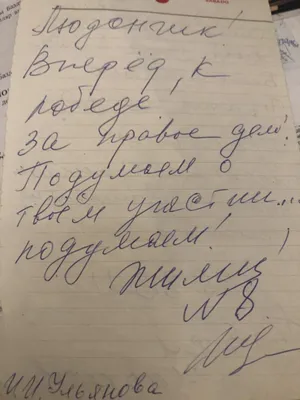 Людончик!
Вперёд, к
победе,
за правое дело!
Подумаем о
твоём участии...
подумаем!
Жилец
N 8.
И.И. Ульянова